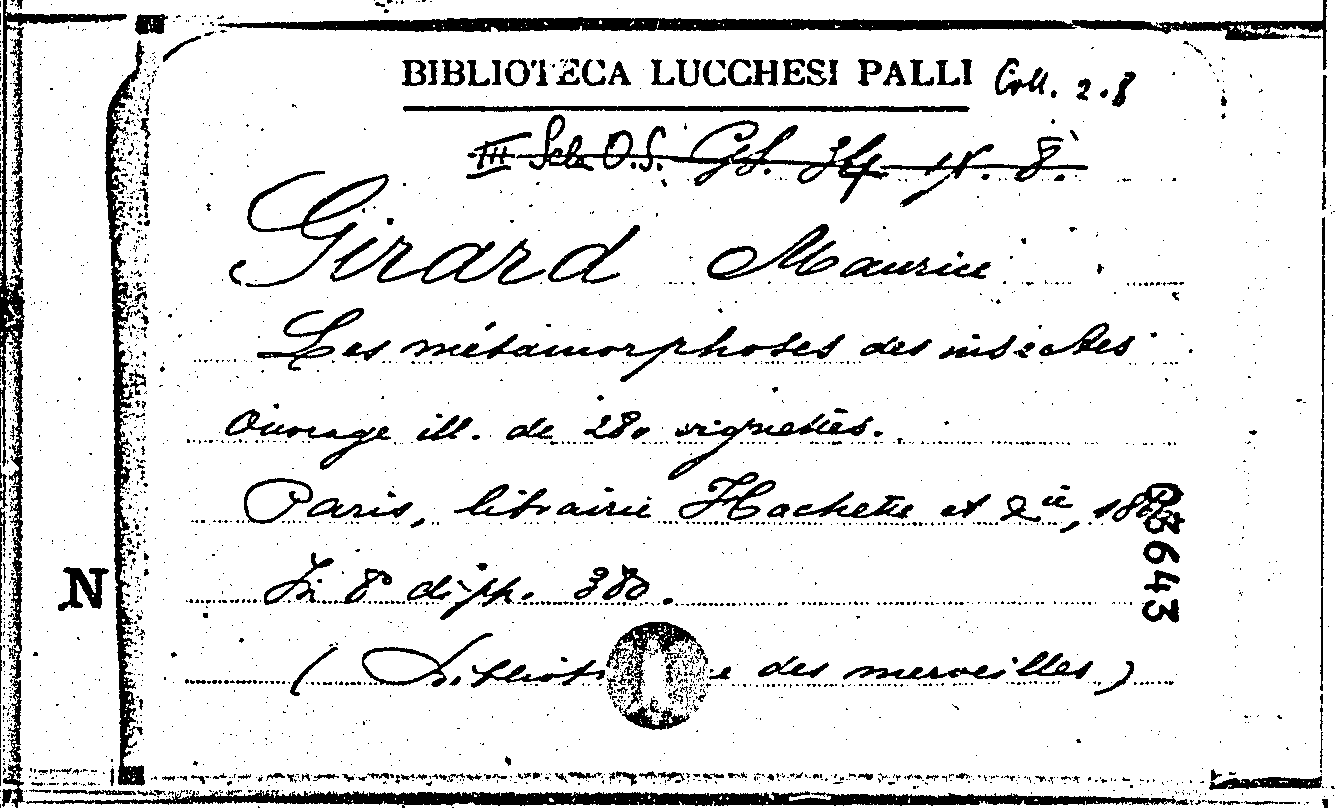 BIBLIOTECA LUCCHESI PALLI Coll. 2.8
III Sch. O.S. 
Girard Maurice
Les métamorphoses des insectes
Ouvrage ill. de 280 vignettes.
Paris, librairie Hachette et Cie,
In 8° di pp. 380.
( des merveilles)
N
3643